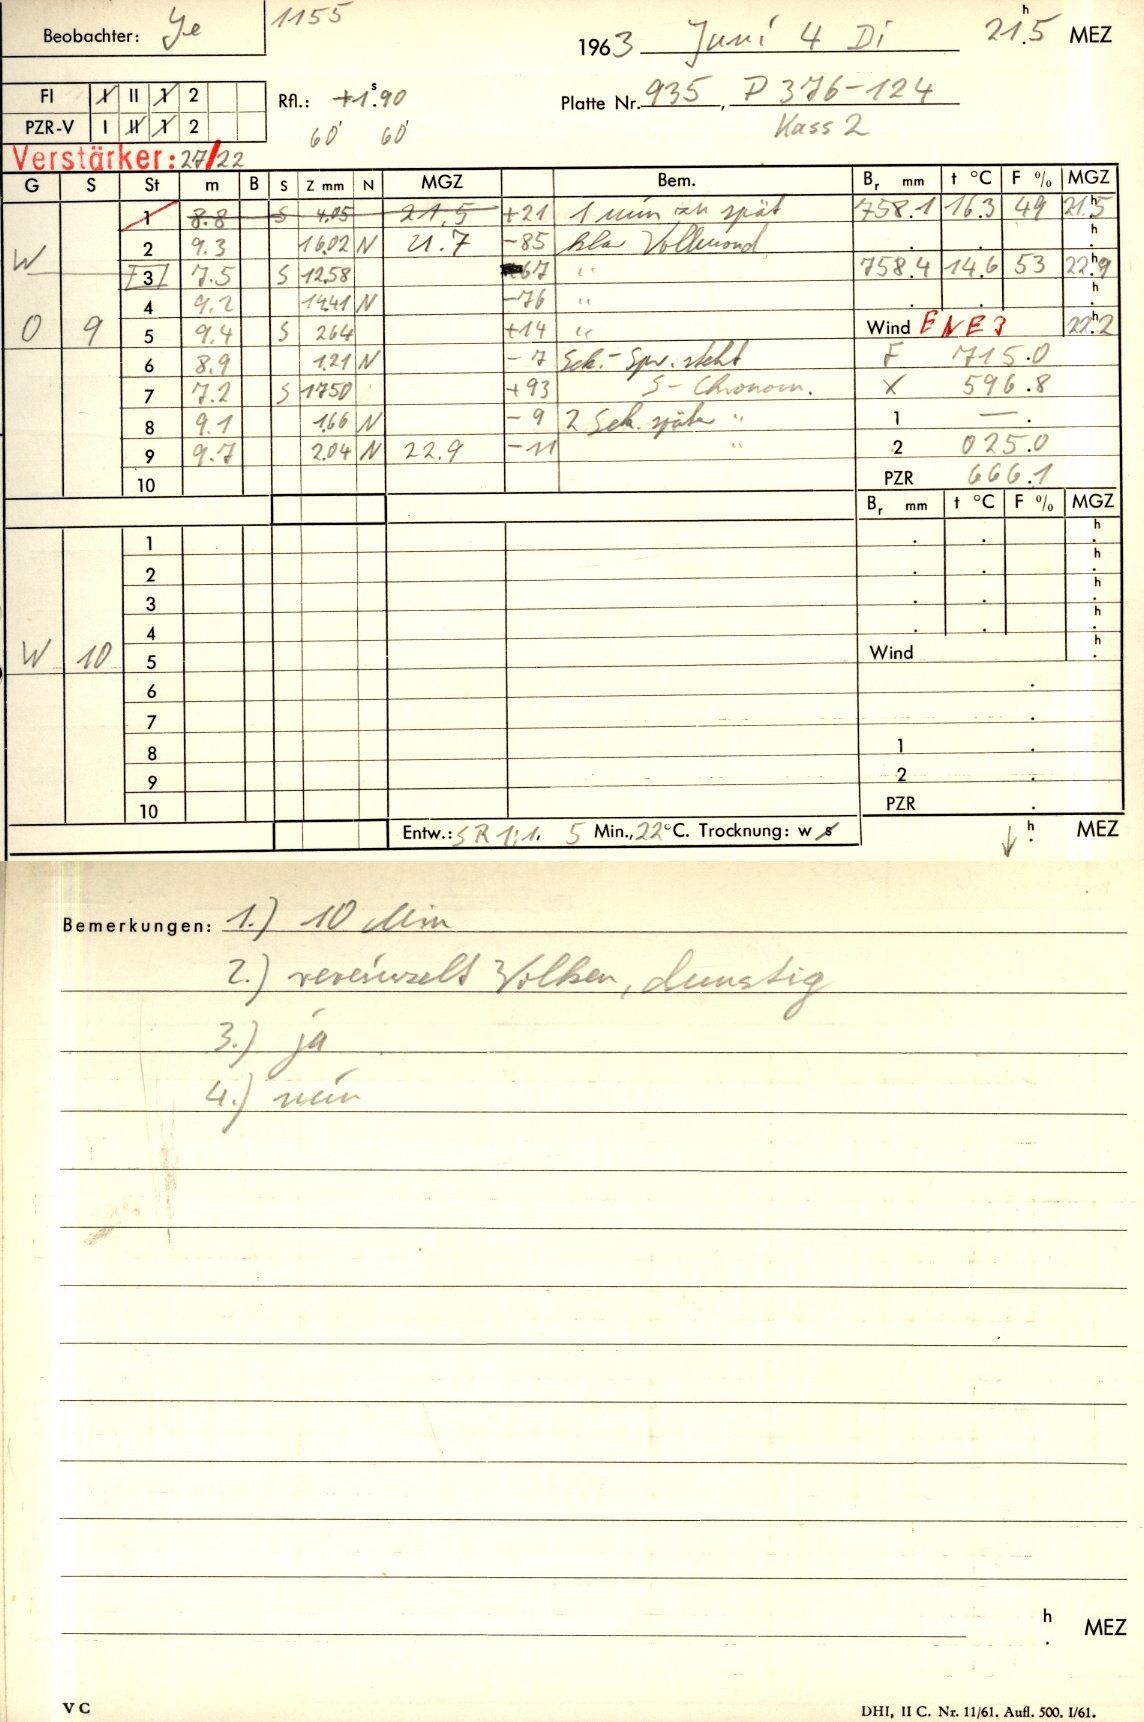 Beobachter: Ye 1155
1963 Juni 4 Di 21.5 h MEZ
FI I II 1 2
Rfl.: +1.90 s
Platte Nr. 935, P 376-124
PZR-V I II 1 2
60' 60'
Kass 2
Verstärker: 27/22
G S St m B S Z mm N MGZ Bem. Br mm t °C F % MGZ
1 8.8 S 4.05 21.5 +21 1 min zu spät 758.1 16.3 49 21.5 h
W 2 9.3 16.02 N 21.7 -85 klar Vollmond . . h
3 7.5 S 12.58 67 " 758.4 14.6 53 22.9 h
4 9.2 14.41 N -76 " . . h
O 9 5 9.4 S 2.64 +14 " Wind ENE 3 22.2 h
6 8.9 1.21 N -7 Sek.-Spr. steht F 715.0
7 7.2 S 17.50 +93 S-Chronom. X 596.8
8 9.1 1.66 N -9 2 Sek. später " 1 — .
9 9.7 2.04 N 22.9 -11 " 2 025.0
10 PZR 666.1
Br mm t °C F % MGZ
1 . . h
2 . . h
3 . . h
4 . . h
W 10 5 Wind h
6 .
7 .
8 1 .
9 2 .
10 PZR .
Entw.: SR 1:1. 5 Min., 22 °C. Trocknung: w s h MEZ
Bemerkungen: 1.) 10 Min
2.) vereinzelt Wolken, dunstig
3.) ja
4.) nein
h
. MEZ
V C
DHI, II C. Nr. 11/61. Aufl. 500. I/61.